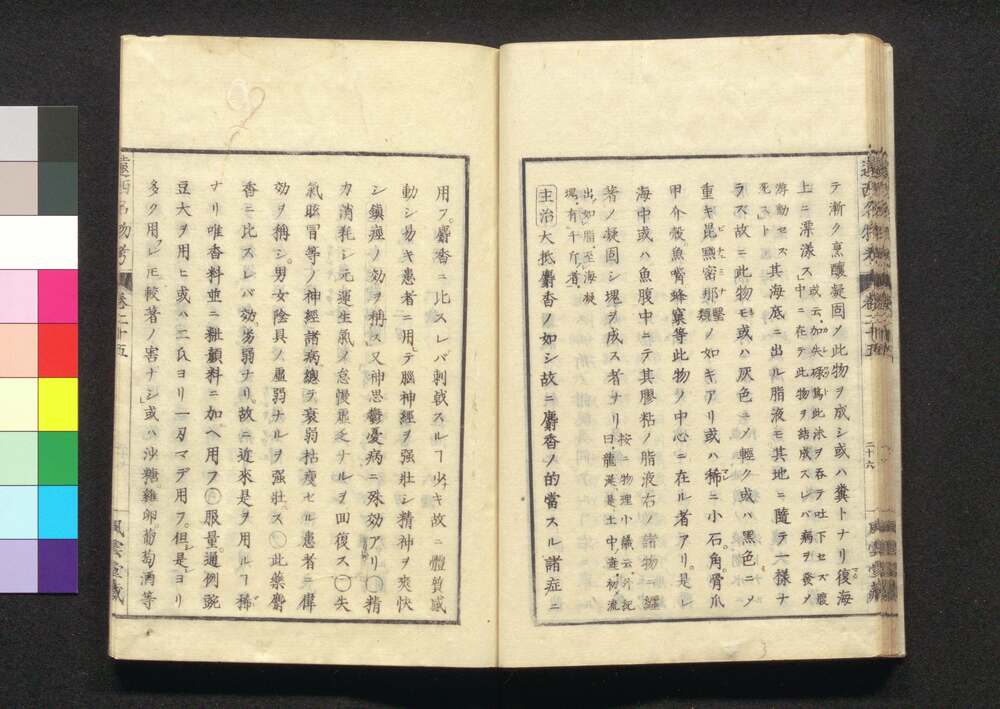 テ漸ク烹醸凝固メ此物ヲ成シ或ハ糞トナリ復海
上ニ漂漾ス」或云加失碌篤此氷ヲ呑テ吐下セズ腹
中ニ在テ此物ヲ結成スレバ病ヲ發メ
死スト游動セズ其海底ニ出ル脂液モ其地ニ隨テ一様ナ
ラズ故ニ此物モ或ハ灰色ニメ輕ク或ハ黒色ニメ
重キ昆㷔密那堅類ノ如キアリ或ハ稀ニ小石角骨爪
甲介殻魚嘴蜂窠等此物ノ中心ニ在ル者アリ是レ
海中或ハ魚腹中ニテ其膠粘ノ脂液右ノ諸物ニ纒
著ノ凝固シ塊ヲ成ス者ナリ按ニ物理小識云外記
曰龍涎是土中産初流
出如脂至海凝
塊有千斤者
主治大抵麝香ノ如シ故ニ麝香ノ的當スル諸症ニ
二十六
風雲堂蔵
用フ麝香ニ比スレバ刺戟スルヿ少キ故ニ體質感
動シ易キ患者ニ用テ腦神經ヲ强壯シ精神ヲ爽快
シ鎮痙ノ功ヲ稱ス又神思鬱憂病ニ殊効アリ○精
力消耗シ元運生氣ノ怠慢虚乏ナルヲ回復ス○失
氣眩冒等ノ神經諸病總テ衰弱枯痩セル患者ニ偉
効ヲ稱シ男女陰具ノ虚弱ナルヲ强壯ス○此藥麝
香ニ比スレバ効劣弱ナリ故ニ近來是ヲ用ルヿ稀
ナリ唯香料並ニ粧顔料ニ加ヘ用フ○服量通例豌
豆大ヲ用ヒ或ハ二氏ヨリ一刄マデ用フ但是ヨリ
多ク用レ𪜈較著ノ害ナシ」或ハ沙糖雞卵葡萄酒等
遠西名物考
卷二十五
風雲堂蔵